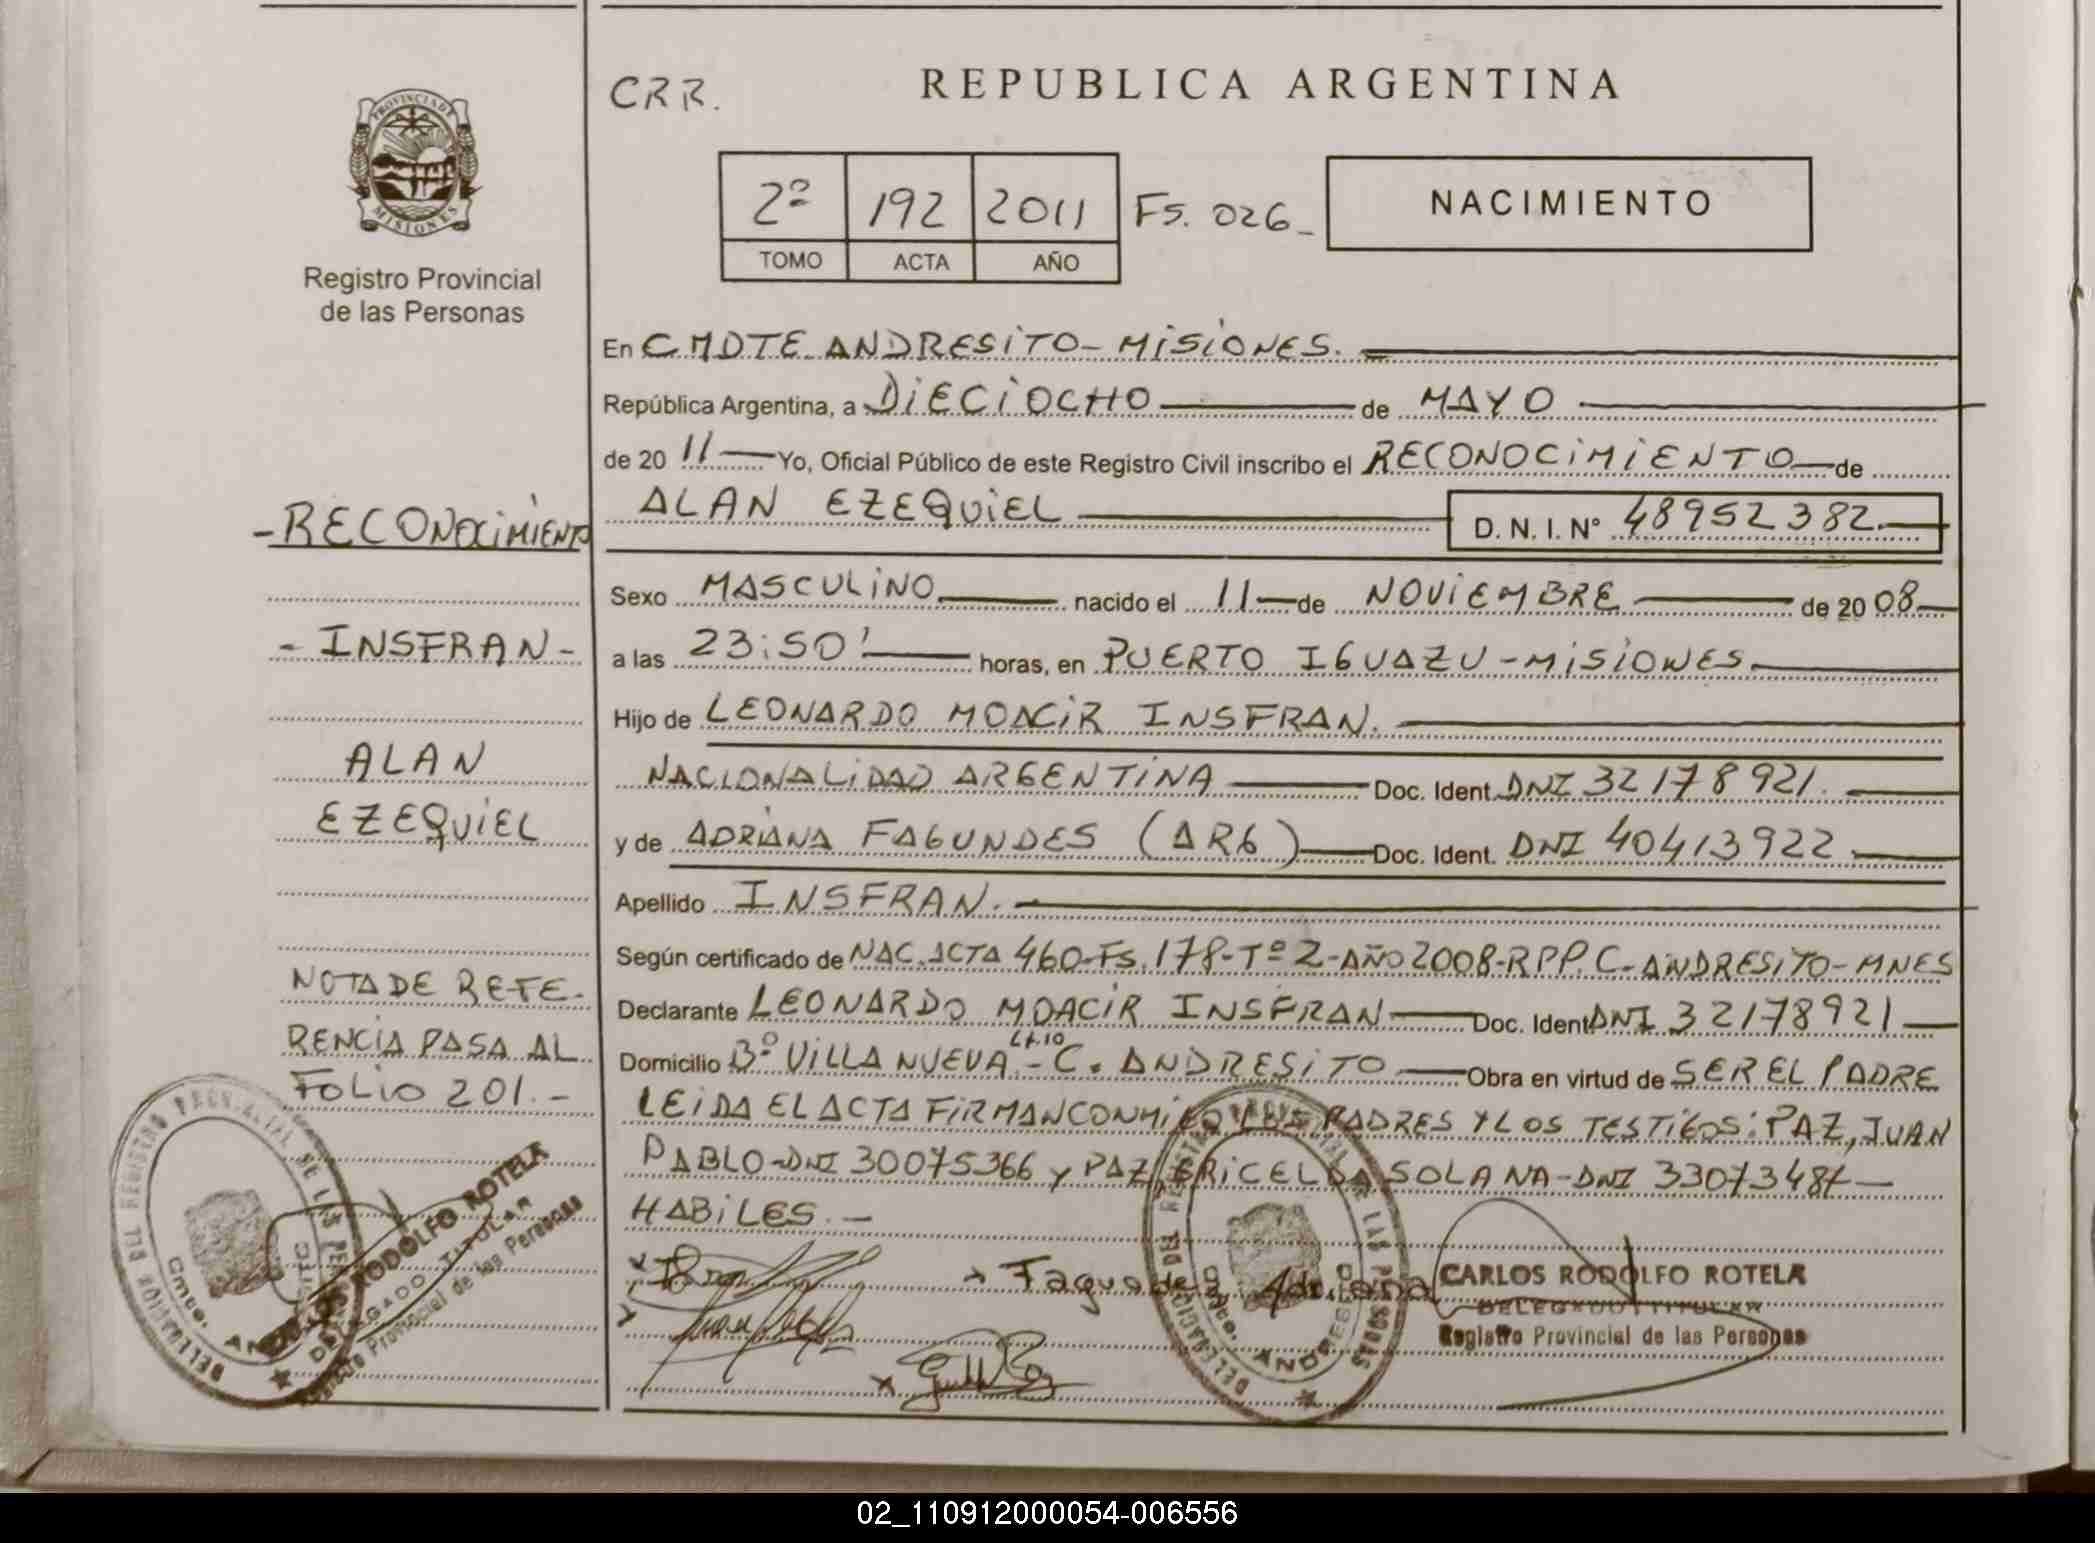 CRR.
REPUBLICA ARGENTINA
PROVINCIA DE
MISIONES
Registro Provincial
de las Personas
2º 192 2011 Fs. 026_
TOMO ACTA AÑO
NACIMIENTO
En CMDTE ANDRESITO - MISIONES.
República Argentina, a DIECIOCHO de MAYO
de 20 11 Yo, Oficial Público de este Registro Civil inscribo el RECONOCIMIENTO de
ALAN EZEQUIEL D. N. I. Nº 48952382.
Sexo MASCULINO nacido el 11 de NOVIEMBRE de 20 08
a las 23:50' horas, en PUERTO IGUAZU - MISIONES
Hijo de LEONARDO MOACIR INSFRAN.
NACIONALIDAD ARGENTINA Doc. Ident. DNI 32178921.
y de ADRIANA FAGUNDES (ARG) Doc. Ident. DNI 40413922
Apellido INSFRAN.
Según certificado de NAC. ACTA 460-Fs. 178-Tº 2-AÑO 2008-RPP. C-ANDRESITO-MNES
Declarante LEONARDO MOACIR INSFRAN Doc. Ident DNI 32178921
Domicilio Bº VILLA NUEVA Lt.10 - C. ANDRESITO Obra en virtud de SER EL PADRE
LEIDA EL ACTA FIRMAN CONMIGO LOS PADRES Y LOS TESTIGOS: PAZ, JUAN
PABLO-DNI 30075366 y PAZ, GRICELDA SOLANA-DNI 33073487 —
HABILES. —
Fagundes Adriana
CARLOS RODOLFO ROTELA
DELEGADO TITULAR
Registro Provincial de las Personas
- RECONOCIMIENTO
- INSFRAN -
ALAN
EZEQUIEL
NOTA DE REFE-
RENCIA PASA AL
FOLIO 201. -
DELEGACION DEL REGISTRO PROVINCIAL DE LAS PERSONAS
Cmte. ANDRESITO
CARLOS RODOLFO ROTELA
DELEGADO TITULAR
Registro Provincial de las Personas
DELEGACION DEL REGISTRO PROVINCIAL DE LAS PERSONAS
Cmte. ANDRESITO
02_110912000054-006556